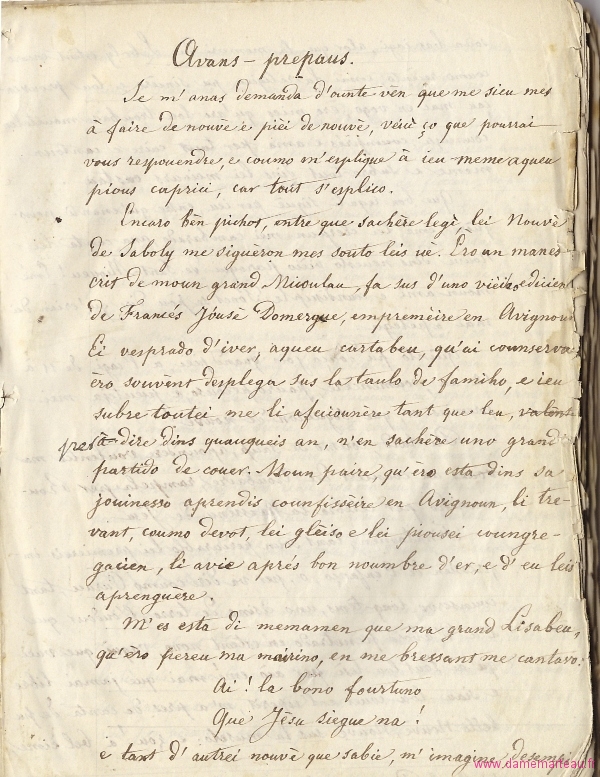 Avans-prepaus.
Se m'anas demanda d'ounte ven que me sieu mes
à faire de nouvè e pièi de nouvè, vèici ço que pourrai
vous respouendre, e coumo m'esplique à ieu-meme aqueu
pious caprici, car tout s'esplico.
Encaro bèn pichot, entre que sachère legi, lei Nouvè
de Saboly me siguèron mes souto leis uè. Èro un manes-
crit de moun grand Micoulau, fa sus d'uno vièio edicien
de Francés Jóusè Domergue, empremèire en Avignoun
Ei vesprado d'iver, aqueu cartabeu, qu'ai counserva
èro souvènt desplega sus la taulo de famiho, e ieu
subre-toutei me li afeciounère tant que leu,
à dire dins quauqueis an, n'en sachère uno grand
partido de couer. Moun paire, qu'èro esta dins sa
jouinesso aprendis counfissèire en Avignoun, li tre-
vant, coumo devot, lei glèiso e lei piousei coungre-
gacien, li aviè aprés bon noumbre d'er, e d'eu leis
aprenguère.
M'es esta di memamen que ma grand Lisabeu,
qu'èro pereu ma meirino, en me bressant me cantavo:
Ai! la bono fourtuno
Que Jèsu siegue na!
e tant d'autrei nouvè que sabiè, m'imagine
www.damemarteau.fr